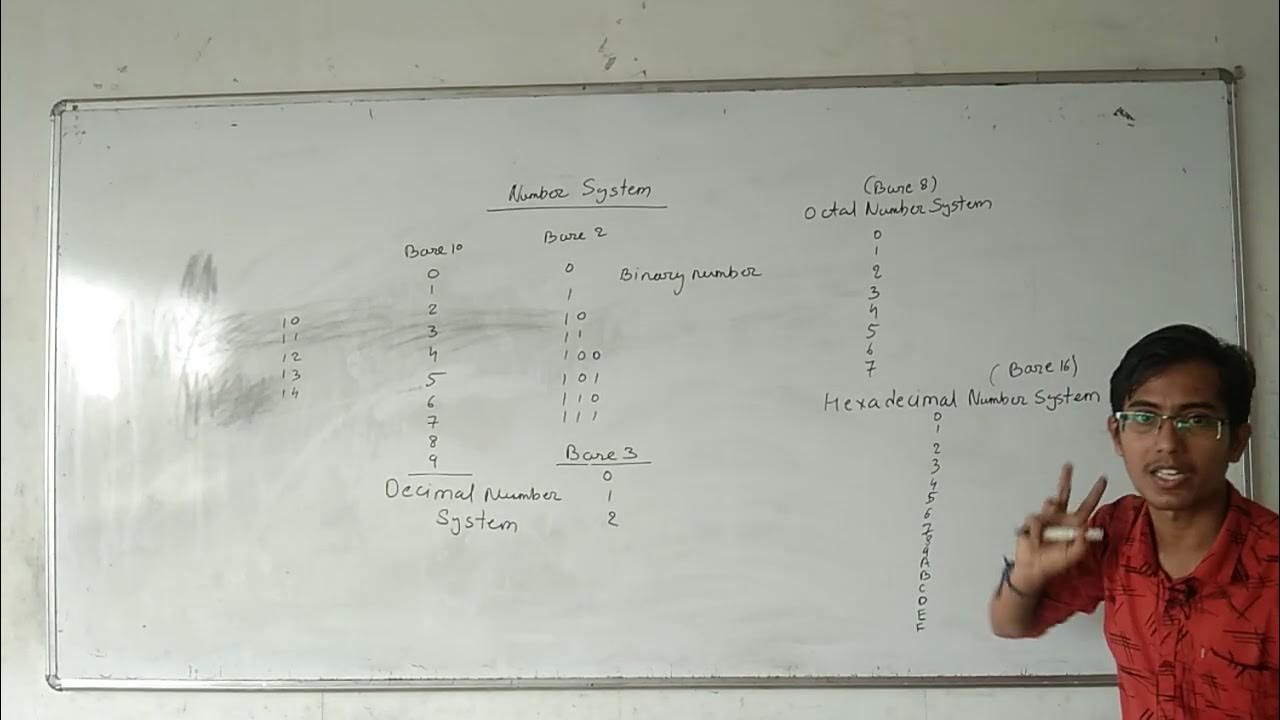 Number System
Bare 10
0
1
2
3
4
5
6
7
8
9
Decimal Number
System
10
11
12
13
14
Bare 2
0
1
10
11
100
101
110
111
Binary number
Bare 3
0
1
2
(Bare 8)
Octal Number System
0
1
2
3
4
5
6
7
(Bare 16)
Hexadecimal Number System
0
1
2
3
4
5
6
7
8
9
A
B
C
D
E
F